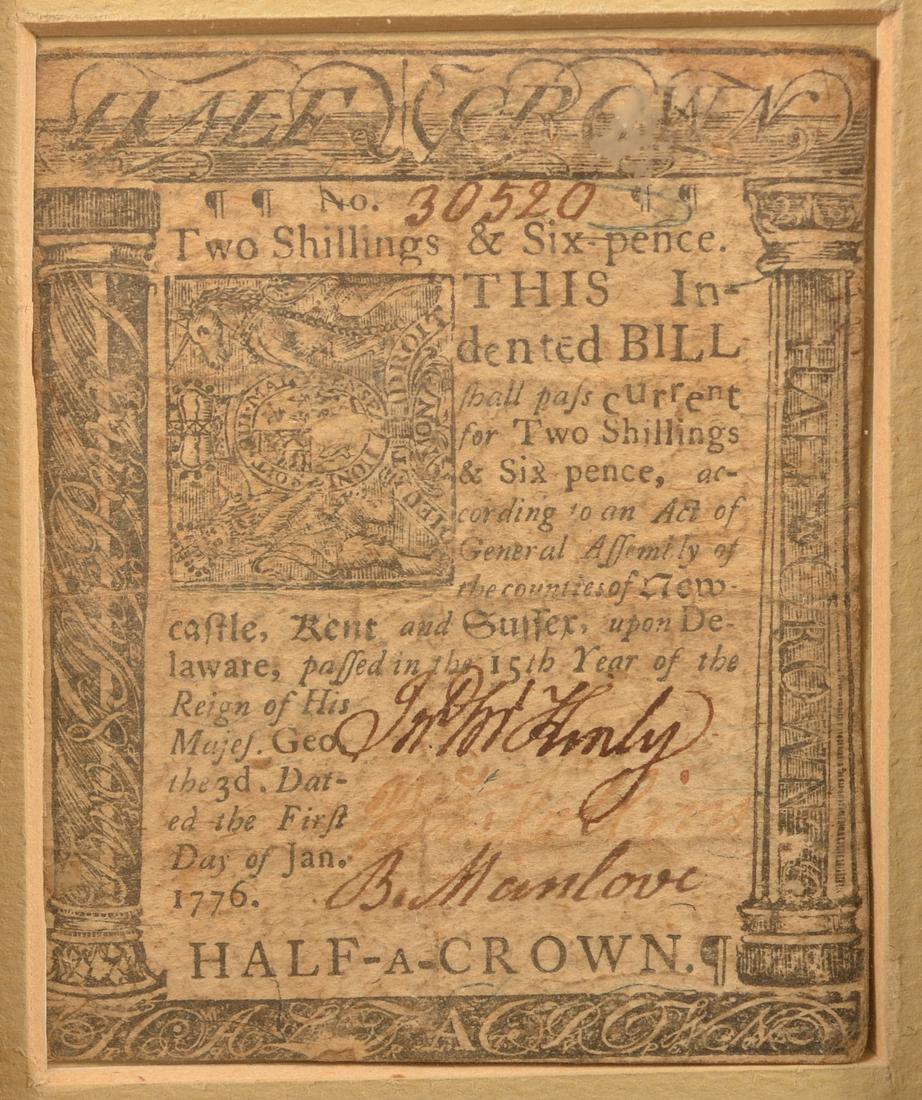 HALF CROWN
¶ ¶ No. 30520 ¶ ¶
Two Shillings & Six-pence.
THIS In-
dented BILL
ſhall paſs current
for Two Shillings
& Six pence, ac-
cording to an Act of
General Aſſembly of
the counties of New-
caſtle, Kent and Suſſex, upon De-
laware, paſſed in the 15th Year of the
Reign of His
Majeſ. Geo.
the 3d. Dat-
ed the Firſt
Day of Jan.
1776.
Jno. Mc Kinly
B. Manlove
HALF-A-CROWN.¶
HALF A CROWN
HALF CROWN
DIEU ET MON DROIT
HONI SOIT QUI MAL